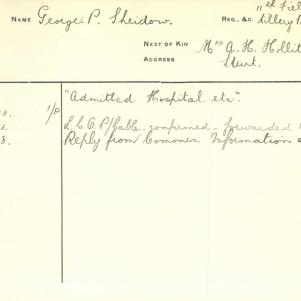 "th Fiel
NAME George. P. Sheidow. REG., &C. tillery B
NEXT OF KIN Mrs A. H. Hollit
ADDRESS Sturt.
"Admitted Hospital etc".
8. 1/P
L.C.O. P/Cable. confirmed - forwarded
8. Reply from Comones. Information